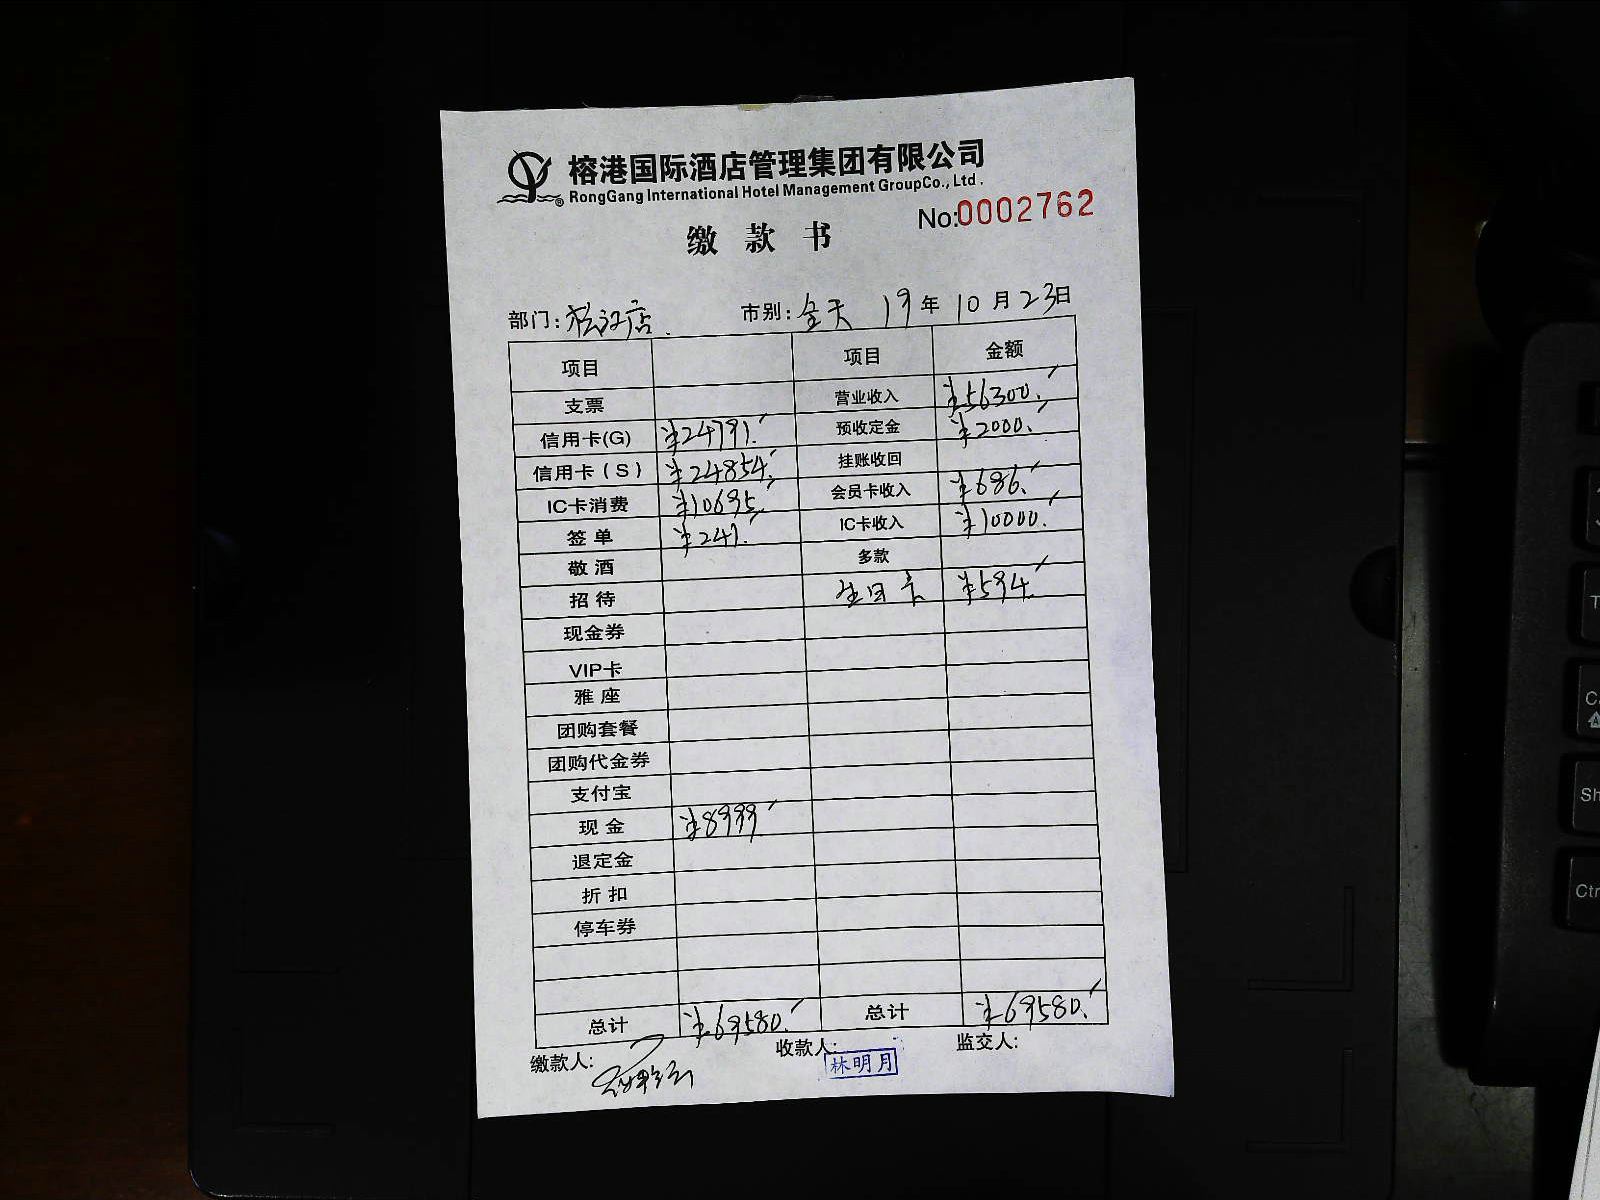 榕港国际酒店管理集团有限公司
RongGang International Hotel Management GroupCo., Ltd.
No:0002762
缴款书
部门:松江店. 市别:全天 19年10月23日
项目 项目 金额
支票 营业收入 ¥56300.
信用卡(G) ¥24791. 预收定金 ¥2000.
信用卡(S) ¥24854. 挂账收回
IC卡消费 ¥10695. 会员卡收入 ¥686.
签单 ¥241. IC卡收入 ¥10000.
敬酒 多款
招待 生日卡 ¥594.
现金券
VIP卡
雅座
团购套餐
团购代金券
支付宝
现金 ¥8999
退定金
折扣
停车券
总计 ¥69580. 总计 ¥69580.
缴款人: 收款人: 林明月 监交人: